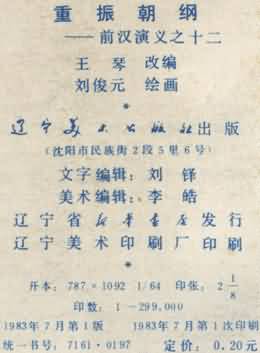 重振朝纲
——前汉演义之十二
王琴 改编
刘俊元 绘画
*
辽宁美术出版社出版
(沈阳市民族街2段5里6号)
文字编辑：刘铎
美术编辑：李皓
辽宁省新华书店发行
辽宁美术印刷厂印刷
*
开本：787×1092 1/64 印张：2 1/8
印数：1—299,000
1983年7月第1版 1983年7月第1次印刷
统一书号：7161·0197 定价：0.20元